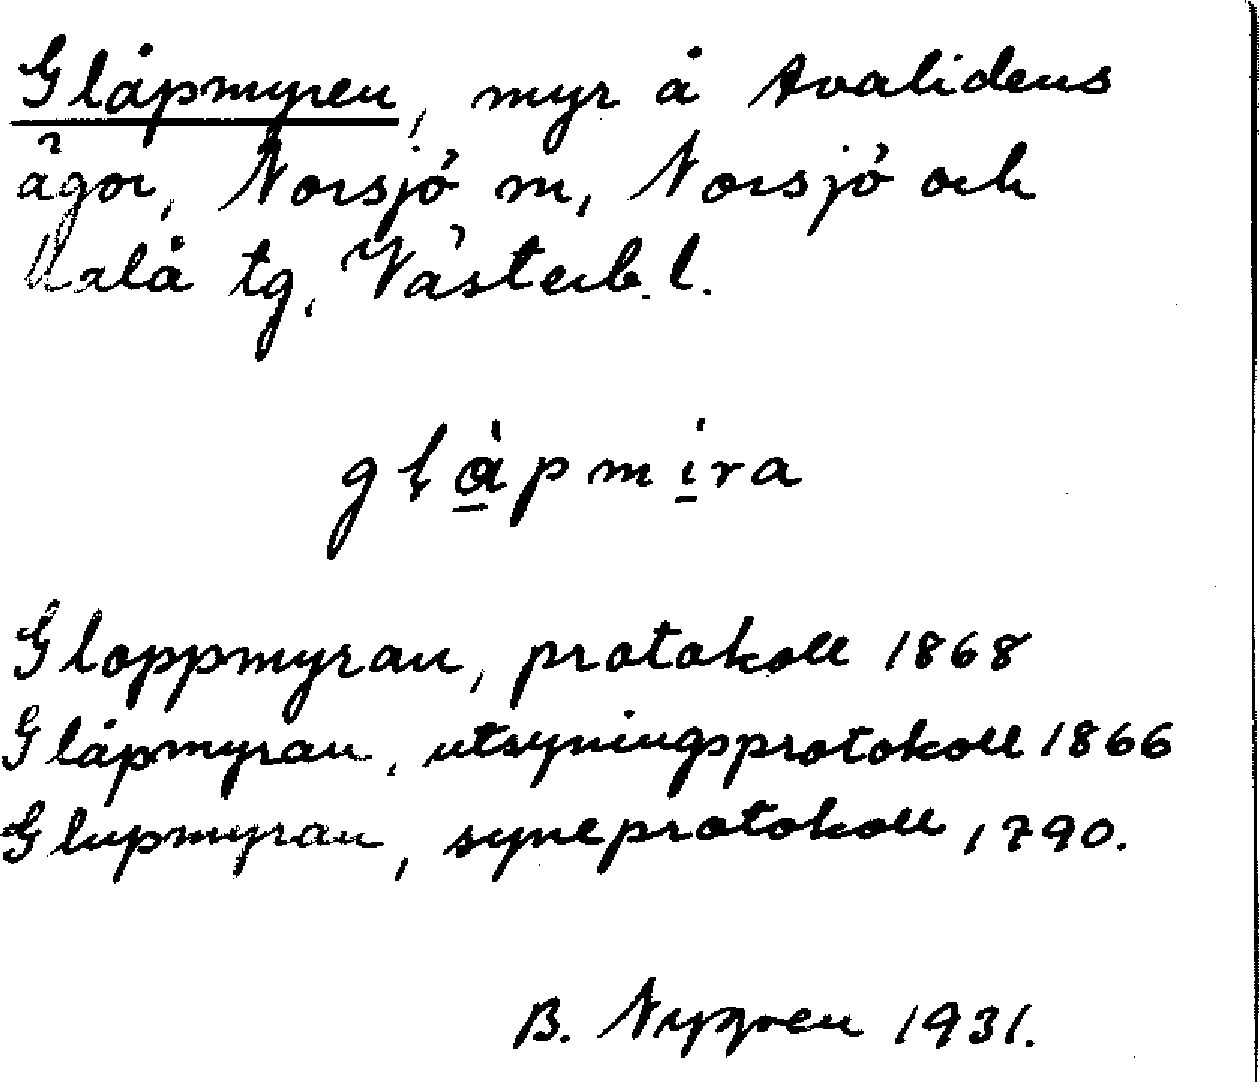 Glåpmyren, myr å Avalidens
ägor, Norsjö sn, Norsjö och
Malå tg, Västerb. l.
gḷå̀pmíra
Gloppmyran, protokoll 1868
Glåpmyran, utsyningsprotokoll 1866
Glupmyran, syneprotokoll 1790.
B. Nygren 1931.